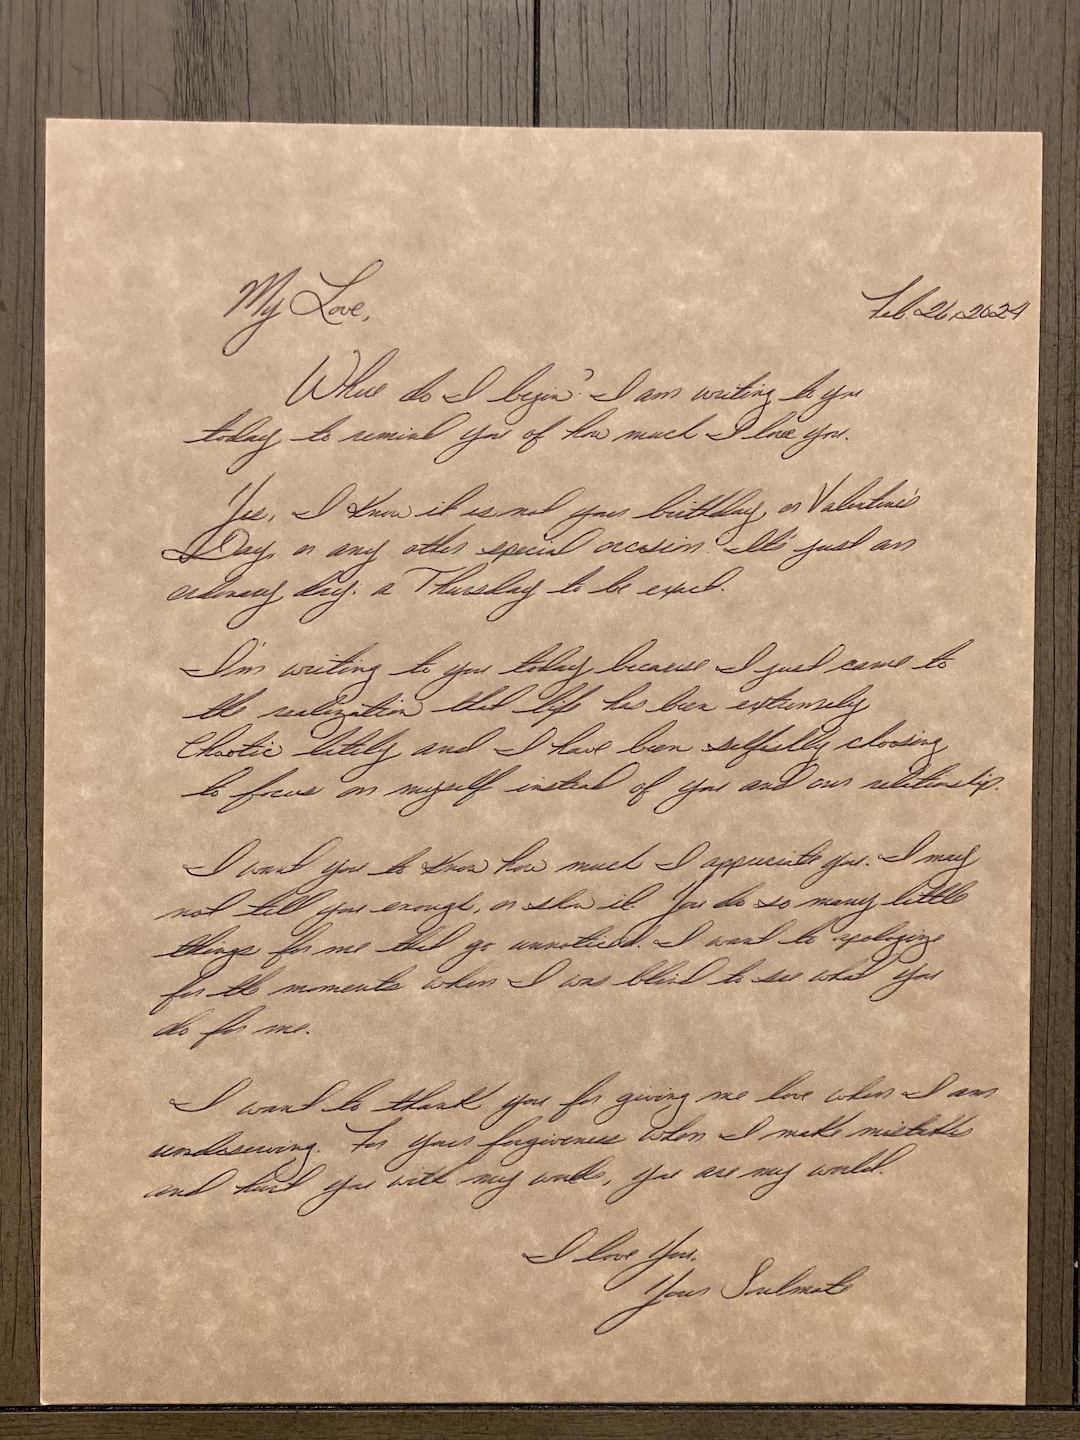 My Love,
Feb. 26, 2024
Where do I begin? I am writing to you
today, to remind you of how much I love you.
Yes, I know it is not your birthday, or Valentine's
Day, or any other special occasion. It's just an
ordinary day: a Thursday to be exact.
I'm writing to you today because I just came to
the realization that life has been extremely
Chaotic lately and I have been selfishly choosing
to focus on myself instead of you and our relationship.
I want you to know how much I appreciate you. I may
not tell you enough, or show it. You do so many little
things for me that go unnoticed. I want to apologize
for the moments when I was blind to see what you
do for me.
I want to thank you for giving me love when I am
undeserving. For your forgiveness when I make mistakes
and hurt you with my words, you are my world.
I love You.
Your Soulmate